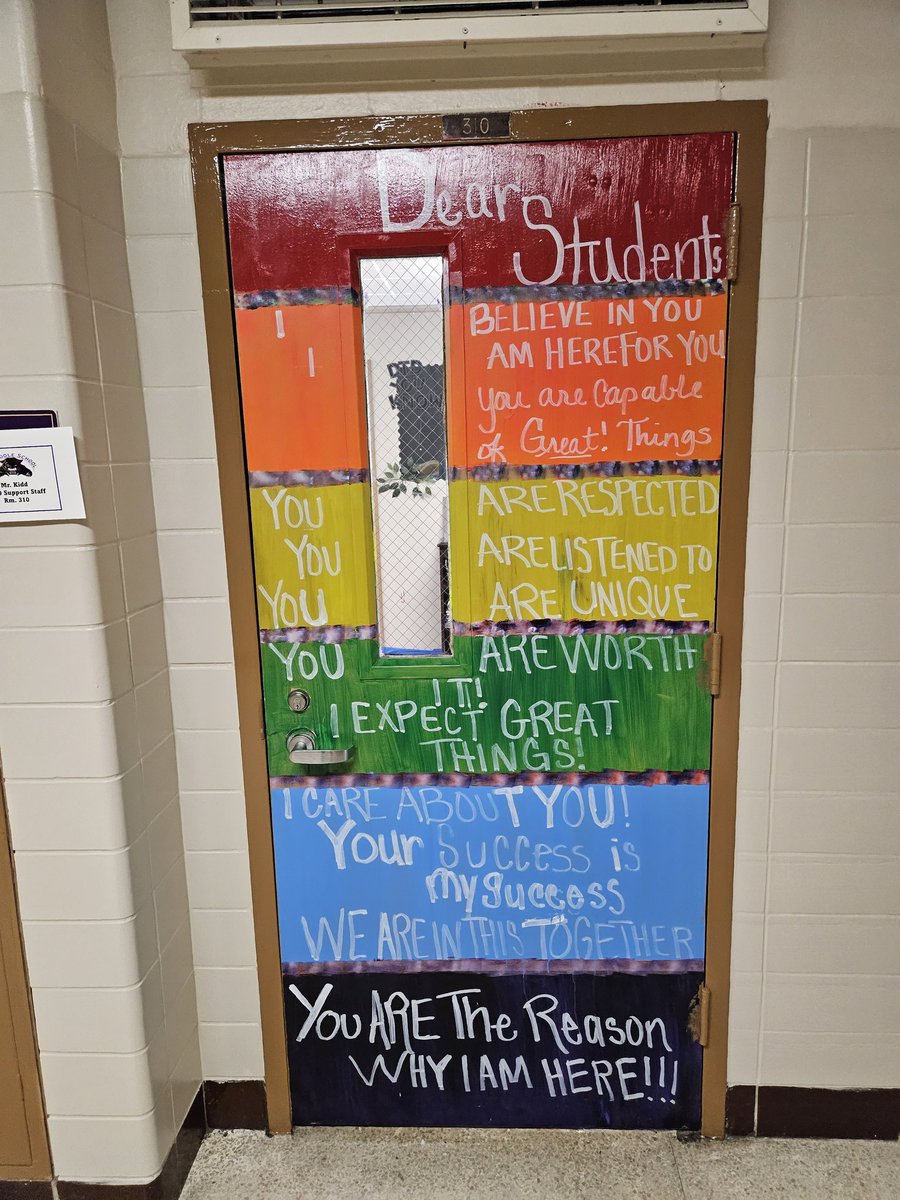 310
Dear
Students
I BELIEVE IN YOU
I AM HERE FOR YOU
you are Capable
of Great! Things
YOU ARE RESPECTED
YOU ARE LISTENED TO
YOU ARE UNIQUE
YOU ARE WORTH
IT!
I EXPECT GREAT
THINGS!
I CARE ABOUT YOU!
Your Success is
My Success
WE ARE IN THIS TOGETHER
You ARE The Reason
WHY I AM HERE!!!
SCHOOL
Mr. Kidd
Support Staff
Rm. 310